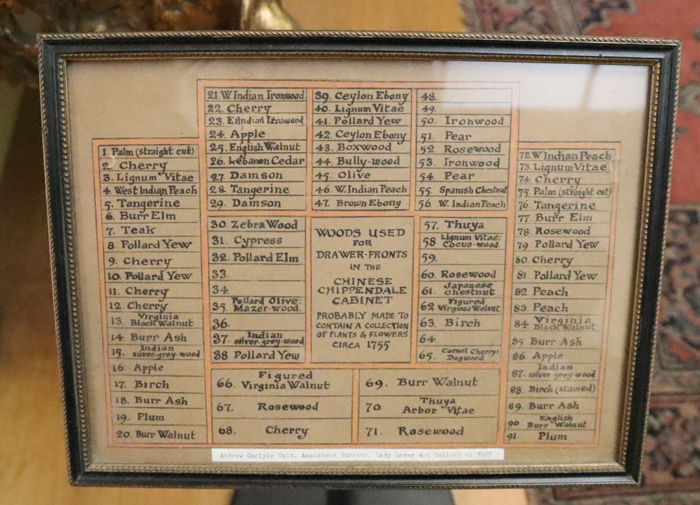 1. Palm (straight cut)
2. Cherry
3. Lignum Vitae
4. West Indian Peach
5. Tangerine
6. Burr Elm
7. Teak
8. Pollard Yew
9. Cherry
10. Pollard Yew
11. Cherry
12. Cherry
13. Virginia
Black Walnut
14. Burr Ash
15. Indian
silver-grey-wood
16. Apple
17. Birch
18. Burr Ash
19. Plum
20. Burr Walnut
21. W Indian Ironwood
22. Cherry
23. E Indian Ironwood
24. Apple
25. English Walnut
26. Lebanon Cedar
27. Damson
28. Tangerine
29. Damson
30. Zebra Wood
31. Cypress
32. Pollard Elm
33.
34.
35. Pollard Olive:
Mazer-wood.
36.
37. Indian
silver-grey-wood
38 Pollard Yew
39. Ceylon Ebony
40. Lignum Vitae
41. Pollard Yew
42. Ceylon Ebony
43. Boxwood
44. Bully-wood
45. Olive
46. W. Indian Peach
47. Brown Ebony
48.
49.
50. Ironwood
51. Pear
52 Rosewood
53. Ironwood
54. Pear
55. Spanish Chestnut
56. W. Indian Peach
WOODS USED
FOR
DRAWER-FRONTS
IN THE
CHINESE
CHIPPENDALE
CABINET
PROBABLY MADE TO
CONTAIN A COLLECTION
OF PLANTS & FLOWERS
CIRCA 1755
57. Thuya
58 Lignum Vitae:
Cocus-wood
59.
60. Rosewood
61. Japanese
Chestnut
62 Figured
Virginia Walnut
63. Birch
64
65. Cornel Cherry:
Dogwood
66. Figured
Virginia Walnut
67. Rosewood
68. Cherry
69. Burr Walnut
70. Thuya
Arbor Vitae
71. Rosewood
72. W Indian Peach
73 Lignum Vitae
74 Cherry
75 Palm (straight cut)
76. Tangerine
77. Burr Elm
78. Rosewood
79. Pollard Yew
80. Cherry
81. Pollard Yew
82. Peach
83. Peach
84. Virginia
Black Walnut
85. Burr Ash
86. Apple
87. Indian
silver grey wood
88. Birch (stained)
89. Burr Ash
90 English
Burr Walnut
91 Plum
Andrew Carlyle Tait, Assistant Curator, Lady Lever Art Gallery